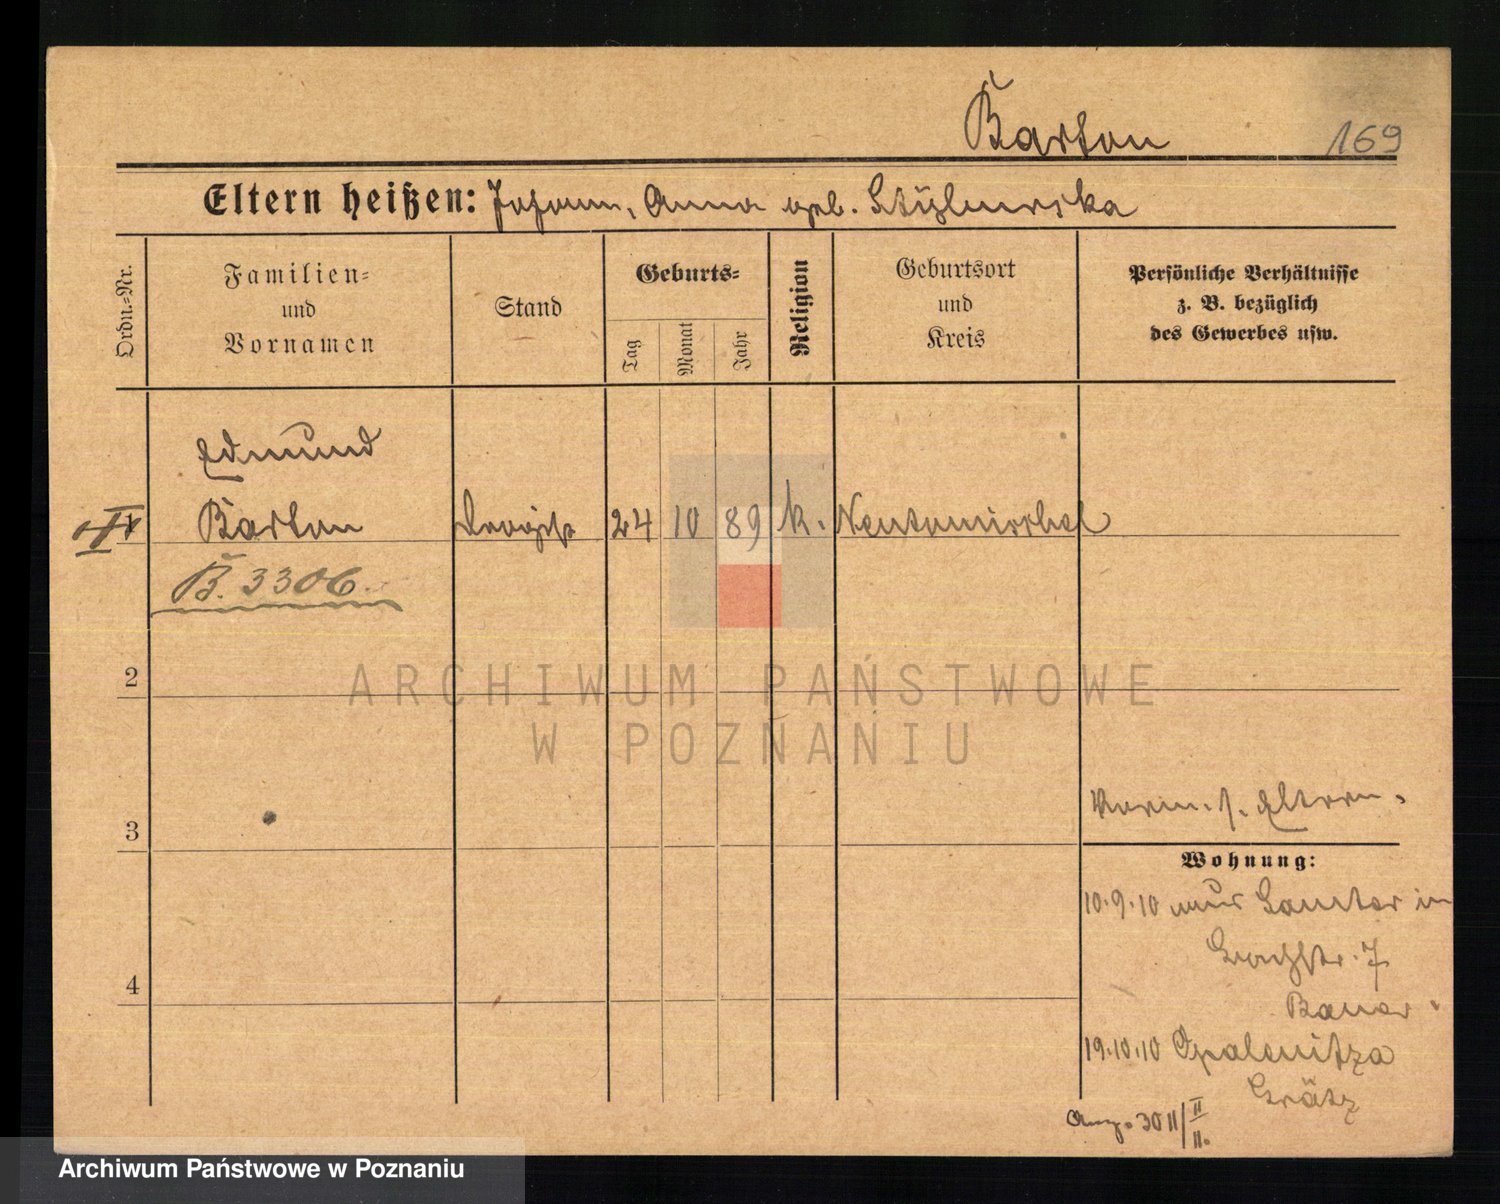 Bartsch
169
Eltern heißen: Johann, Anna geb.
Ordn.-Nr.
Familien-
und
Vornamen
Stand
Geburts-
Tag
Monat
Jahr
Religion
Geburtsort
und
Kreis
Persönliche Verhältnisse
z. B. bezüglich
des Gewerbes usw.
Edmund
Barton Drogist 24 10 89 k. Neutomischel
B. 3306.
2
3
4
Eltern.
Wohnung:
10.9.10 in
7
Bauer
19.10.10 Opalenitza
Grätz
30 11/II
11.
ARCHIWUM PAŃSTWOWE
W POZNANIU
Archiwum Państwowe w Poznaniu